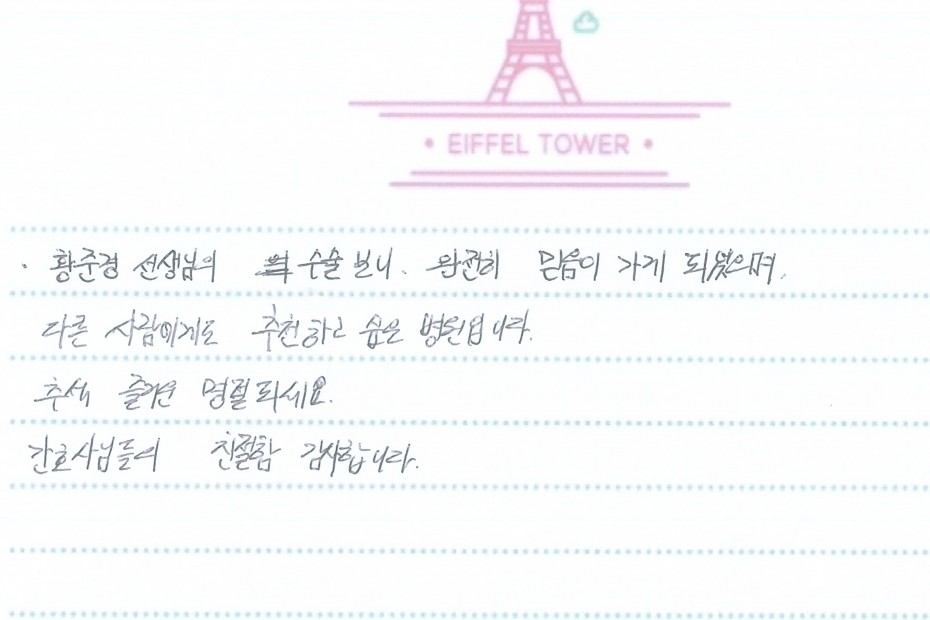 • EIFFEL TOWER •
· 황준경 선생님의 수술 보니. 완전히 믿음이 가게 되었으며,
다른 사람에게도 추천하고 싶은 병원입니다.
추석 즐거운 명절되세요.
간호사님들의 친절함 감사합니다.